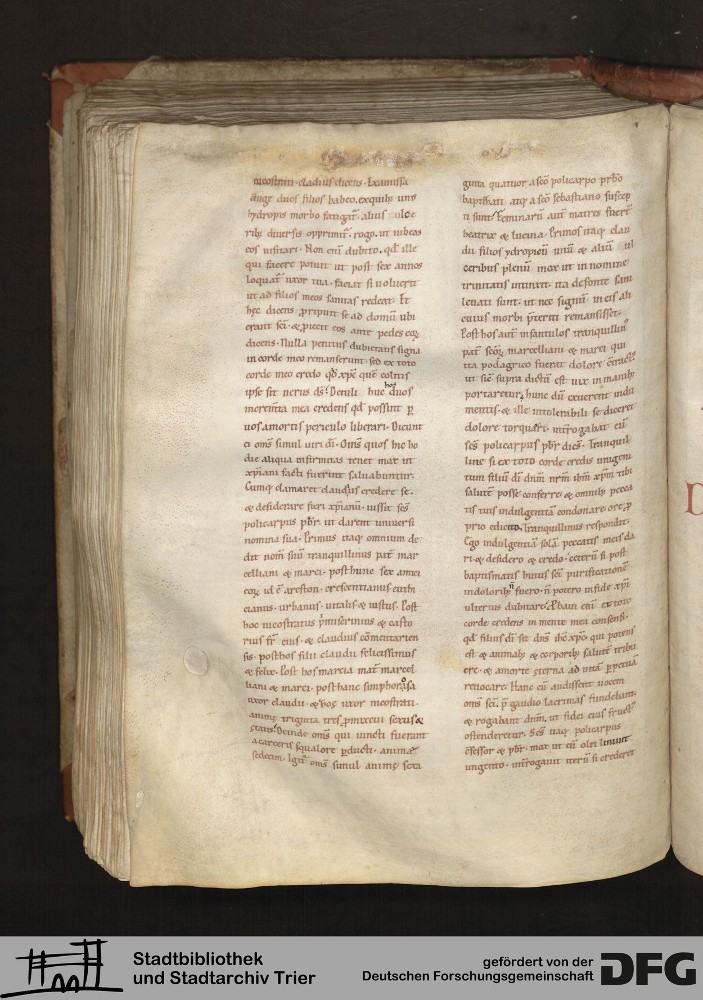 nicostrati · claudius dicens · Ex amissa
duos filios habeo, ex quib; unus
hydropis morbo fatigat̄ · alius ulce
rib; diuersis opprimit̄ · rogo, ut iubeas
eos uisitari · Non eni dubito, qđ ille
qui facere potuit ut post sex annos
loquat̄ uxor tua · faciat si uoluerit
ut ad filios meos sanitas redeat · Et
hęc dicens pripuit se ad domū ubi
erant sci · & piecit eos ante pedes eoꝝ
dicens · Nulla penitus dubietatis signa
in corde meo remanserunt · sed ex toto
corde meo credo qđ xp̄c quē colitis
ipse sit uerus ds · Detuli huc hos duos
merentia mea credens qđ possint p
uos a mortis periculo liberari · Dicunt
ei om̄s simul uiri di · Om̄s quos hic ho
die aliqua infirmitas tenet mox ut
xp̄iani facti fuerint saluabuntur ·
Cumq; clamaret claudius credere se ·
& desiderare fieri xp̄ianū · iussit scs
policarpus pbr̄ ut darent uniuersi
nomina sua · Primus itaq; omnium de
dit nom̄ suū tranquillinus pat̄ mar
celliani & marci · post hunc sex amici
eoꝝ id ē ariston · crescentianus euth
cianus · urbanus · uitalis & iustus · Post
hoc nicostratus & casto
rius fr̄ eius · & claudius cōmentarien
sis · post hos filii claudii felicissimus
& felix · Post hos marcia mat̄ marcel
liani & marci · post hanc simphorosa
uxor claudii · & zoę uxor nicostrati ·
animę triginta tres sexus &
ętatis · Deinde om̄s qui uincti fuerant
a carceris squalore pducti · animę
sedecim · Igit̄ om̄s simul animę sexa
ginta quatuor a scō policarpo pr̄bo
baptizati atq; a scō sebastiano suscep
ti sunt · Feminarū aut̄ matres fuer̄t
beatrix & lucina · Primos itaq; clau
dii filios ydropicū unū & aliū ul
ceribus plenū mox ut in nomine
trinitatis intinxit · ita de fonte sani
leuati sunt · ut nec signū in eis ali
cuius morbi p̄teriti remansisset ·
Post hos aut̄ infantulos tranquillin'
pat̄ scōꝝ marcelliani & marci qui
ita podagrico fuerat dolore
ut sic supra dictū est uix in manib;
portaretur, hunc dū exuerent indu
mentis · & ille intolerabili se diceret
dolore torqueri · int̄rogabat eū
scs policarpus pbr̄ dicēs · Tranquil
line si ex toto corde credis unigeni
tum filiū di dn̄m nr̄m ihm̄ xp̄m tibi
salutē posse conferre · & omnib; pecca
tis tuis indulgentiā condonare · ore p
prio edicito · Tranquillinus respondit ·
Ego indulgentiā solā peccatis meis da
ri · & desidero & credo · ceterū si post
baptismatis huius scī purificationē
in dolorib; fuero · n̄ potero in fide xp̄i
ulterius dubitare · Probaui eni ex toto
corde credens in mente mea consensi ·
qđ filius di sit dn̄s ihc xp̄c · qui potens
est & animab; & corporib; salutē tribu
ere · & a morte ęterna ad uitā ppetuā
reuocare · Hanc cū audissent uocem
om̄s scī · p̄ gaudio lacrimas fundebant ·
& rogabant dn̄m, ut fidei eius fructū
ostenderetur · Scs itaq; policarpus
c̄fessor & pbr̄ · mox ut eū olei liniuit
ungento · int̄rogauit iterū si crederet
D
Stadtbibliothek
und Stadtarchiv Trier
gefördert von der
Deutschen Forschungsgemeinschaft
DFG